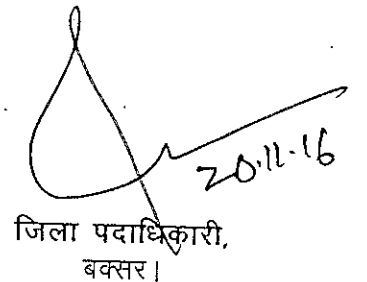 20.11.16
जिला पदाधिकारी,
बक्सर।